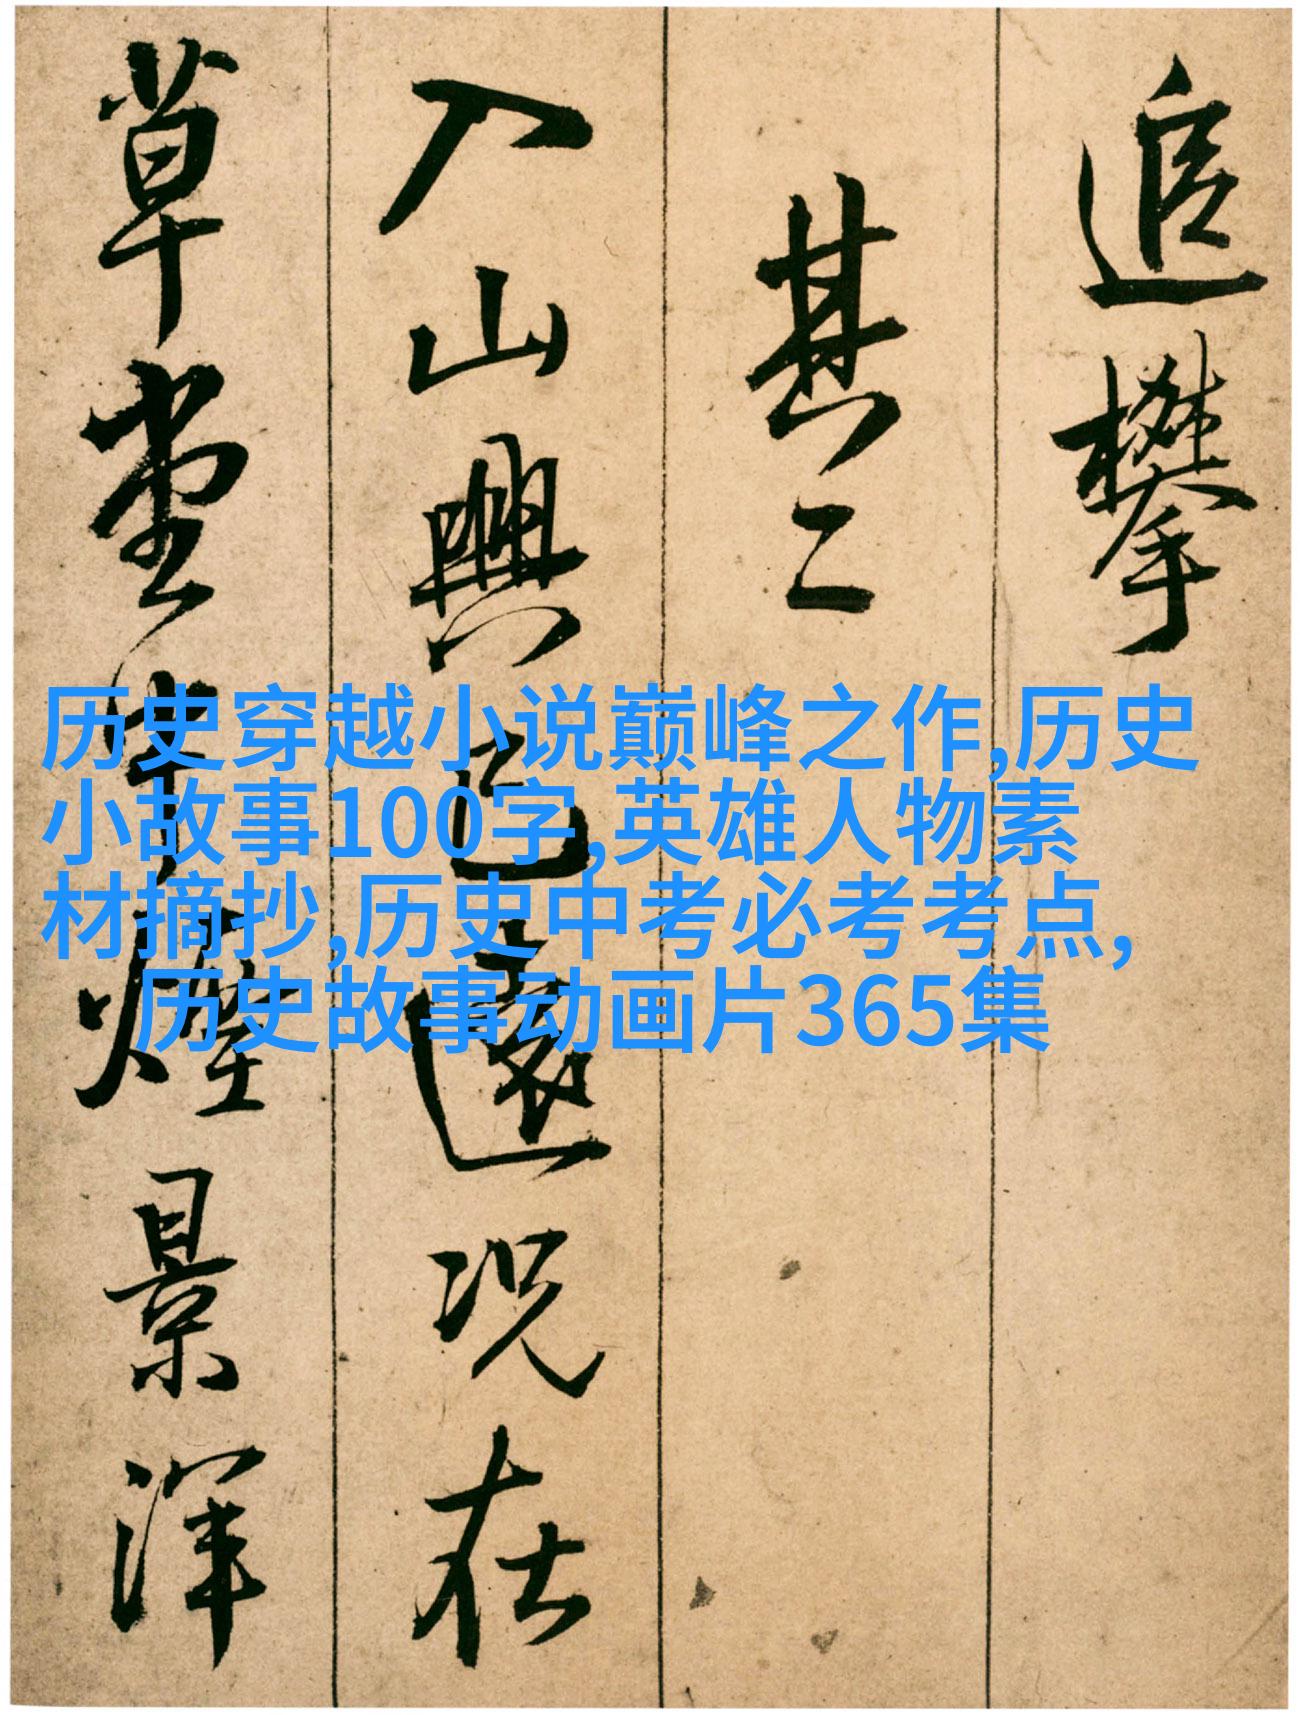 追攀
其二
入山興已遠况在
草堂中煙景渾
历史穿越小说巅峰之作,历史
小故事100字,英雄人物素
材摘抄,历史中考必考考点,
历史故事动画片365集